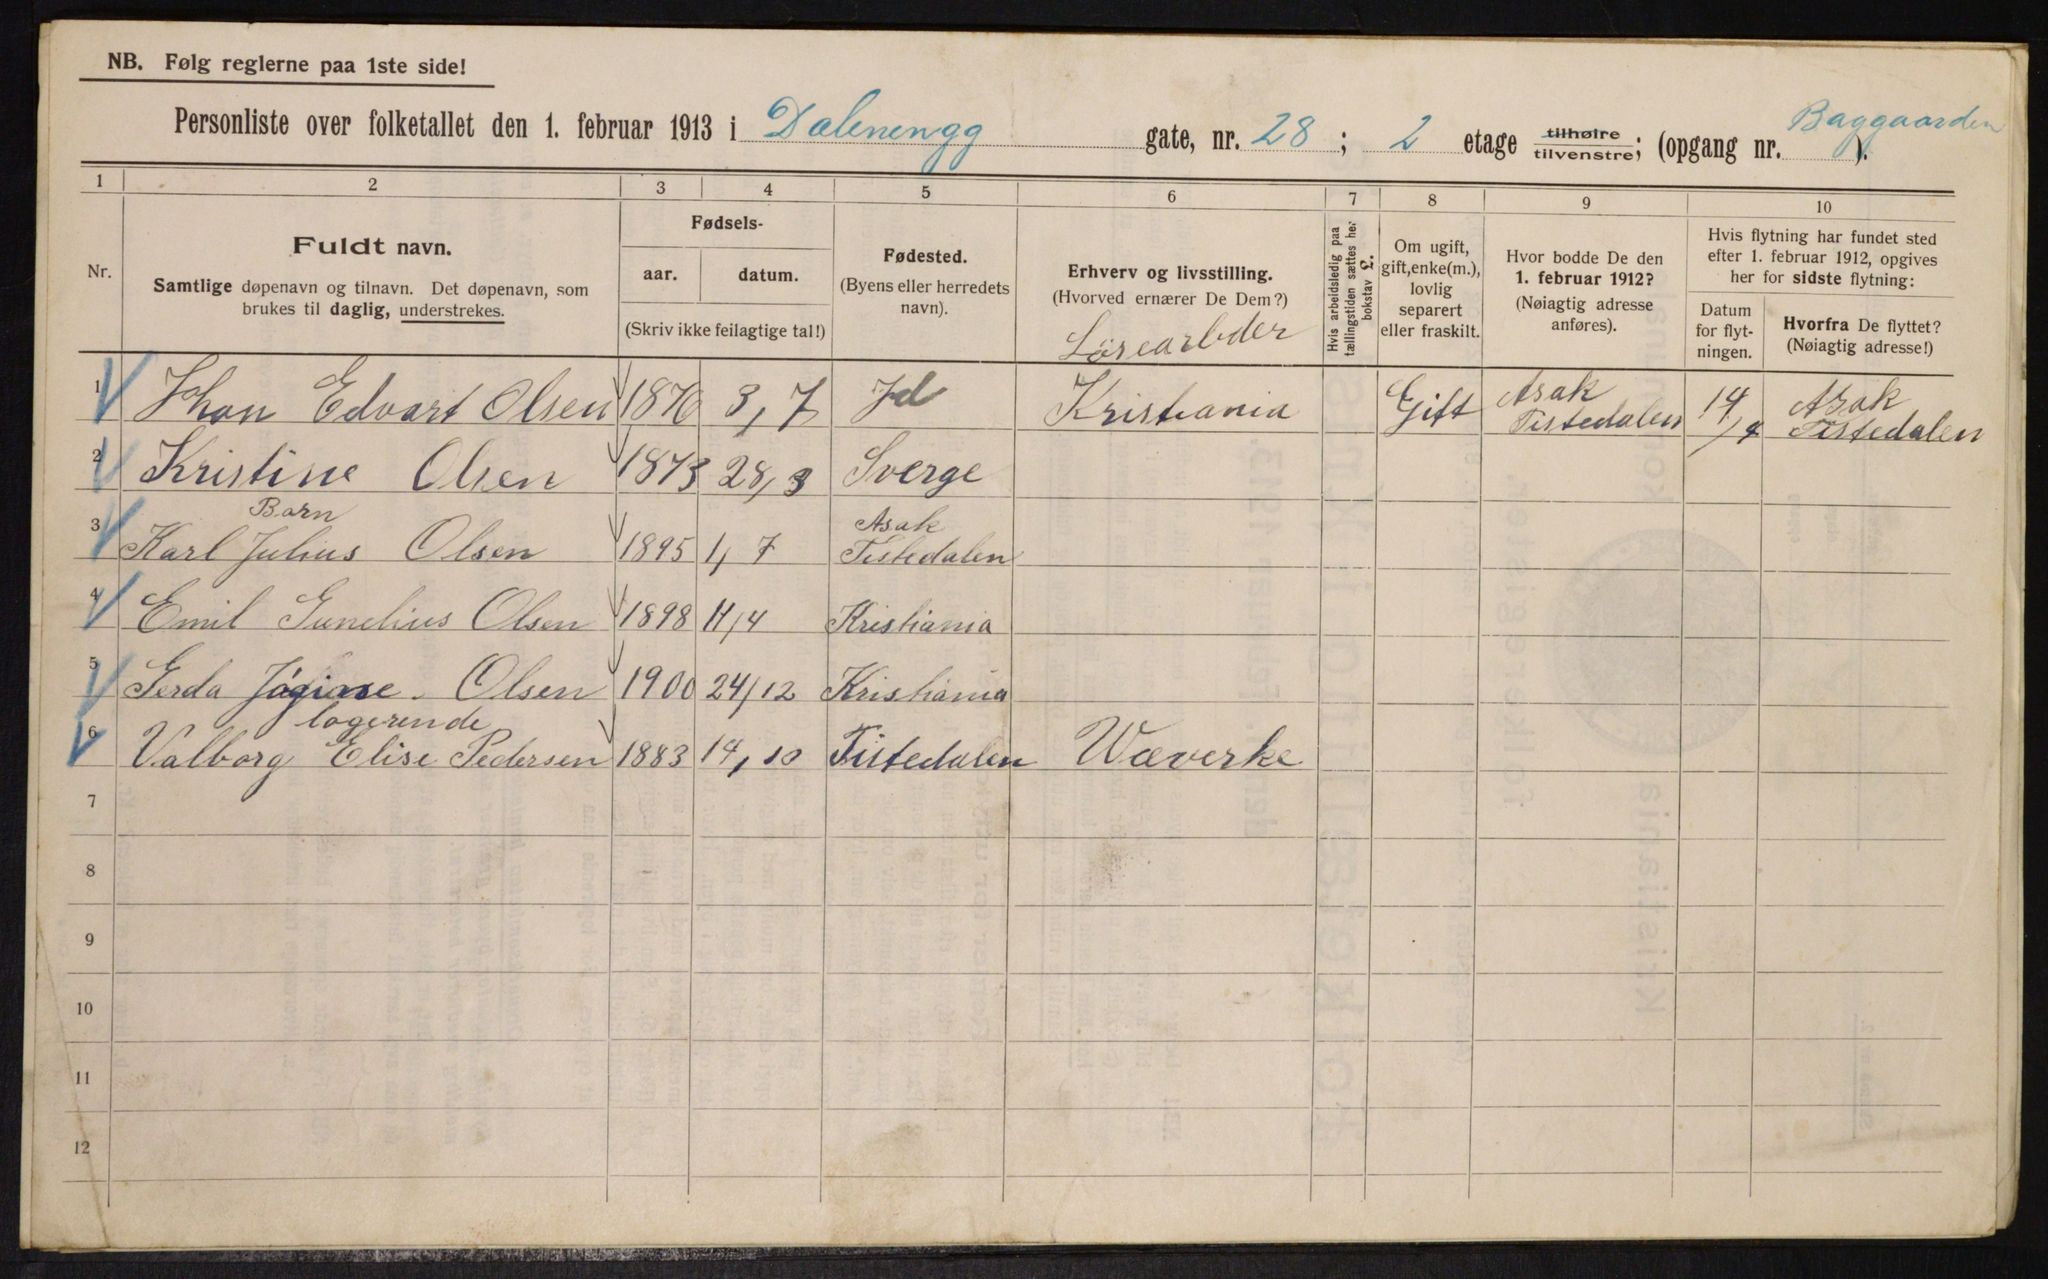 NB. Følg reglerne paa 1ste side!
Personliste over folketallet den 1. februar 1913 i Dælenengg gate, nr. 28 ; 2 etage tilhøire tilvenstre; (opgang nr. Baggaarden ).
1 2 3 4 5 6 7 8 9 10
Nr.
Fuldt navn.
Samtlige døpenavn og tilnavn. Det døpenavn, som
brukes til daglig, understrekes.
Fødsels-
aar. datum.
(Skriv ikke feilagtige tal!)
Fødested.
(Byens eller herredets
navn).
Erhverv og livsstilling.
(Hvorved ernærer De Dem?)
Hvis arbeidsledig paa
tællingstiden sættes her
bokstav £.
Om ugift,
gift, enke(m.),
lovlig
separert
eller fraskilt.
Hvor bodde De den
1. februar 1912?
(Nøiagtig adresse
anføres).
Hvis flytning har fundet sted
efter 1. februar 1912, opgives
her for sidste flytning:
Datum
for flyt-
ningen.
Hvorfra De flyttet?
(Nøiagtig adresse!)
Lösearbder
1 Johan Edvart Olsen 1870 3, 7 Id Kristiania Gift Asak Tistedalen 14/4 Asak Tistedalen
2 Kristine Olsen 1873 28, 3 Sverge
Barn
3 Karl Julius Olsen 1895 1, 7 Asak Tistedalen
4 Emil Olsen 1898 11/4 Kristiania
5 Gerda Olsen 1900 24/12 Kristiania
logerende
6 Valborg Elise Pedersen 1883 14, 10 Tistedalen Wæverke
7
8
9
10
11
12